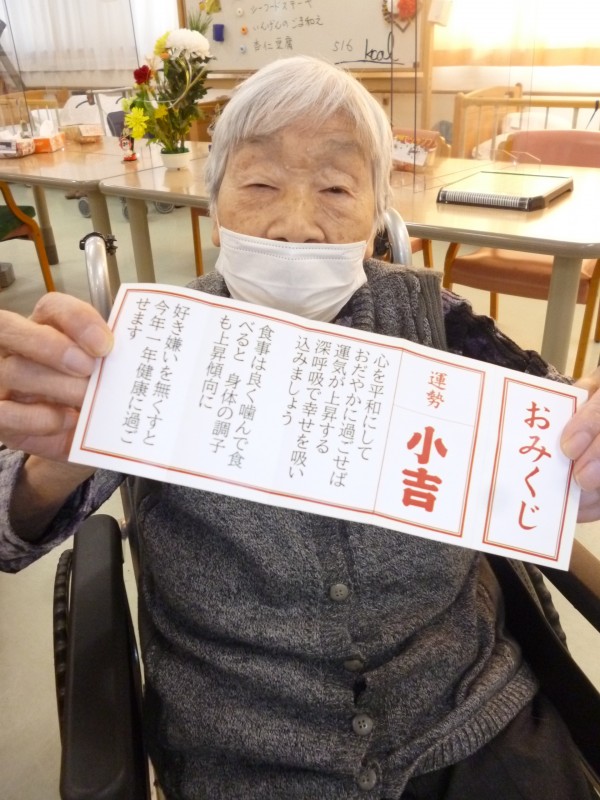 シーフードステーキ
いんげんのごま和え
杏仁豆腐
516 kcal
おみくじ
運勢
小吉
心を平和にして
おだやかに過ごせば
運気が上昇する
深呼吸で幸せを吸い
込みましょう
食事は良く噛んで食
べると 身体の調子
も上昇傾向に
好き嫌いを無ぐすと
今年一年健康に過ご
せます